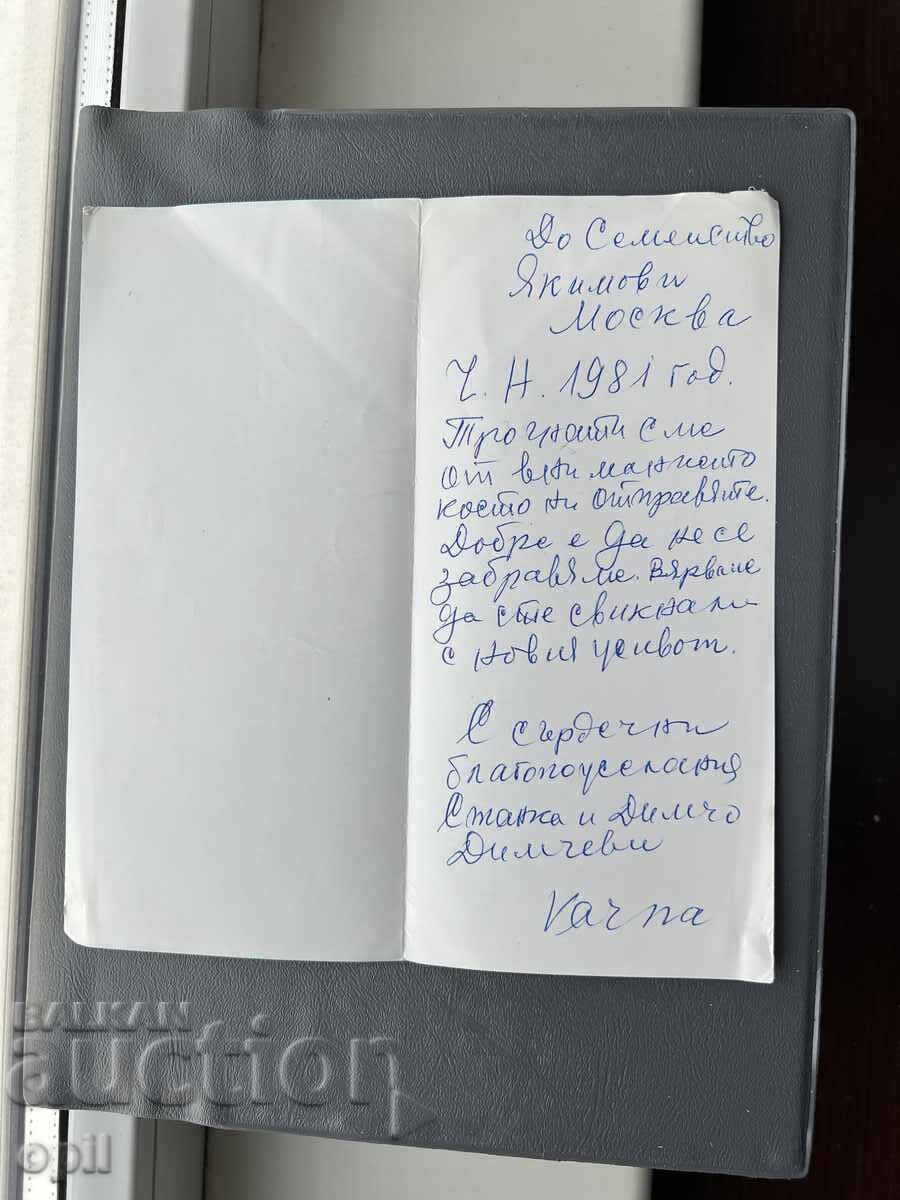 До Семейство
Якимови
Москва
Ч. Н. 1981 год.
Трогнати сме
от вниманието
което ни отправяте.
Добре е да не се
забравяме. Вярваме
да сте свикнали
с новия живот.
С сърдечни
благопожелания
Станка и Димчо
Димчеви
Varna
BALKAN
auction
opil